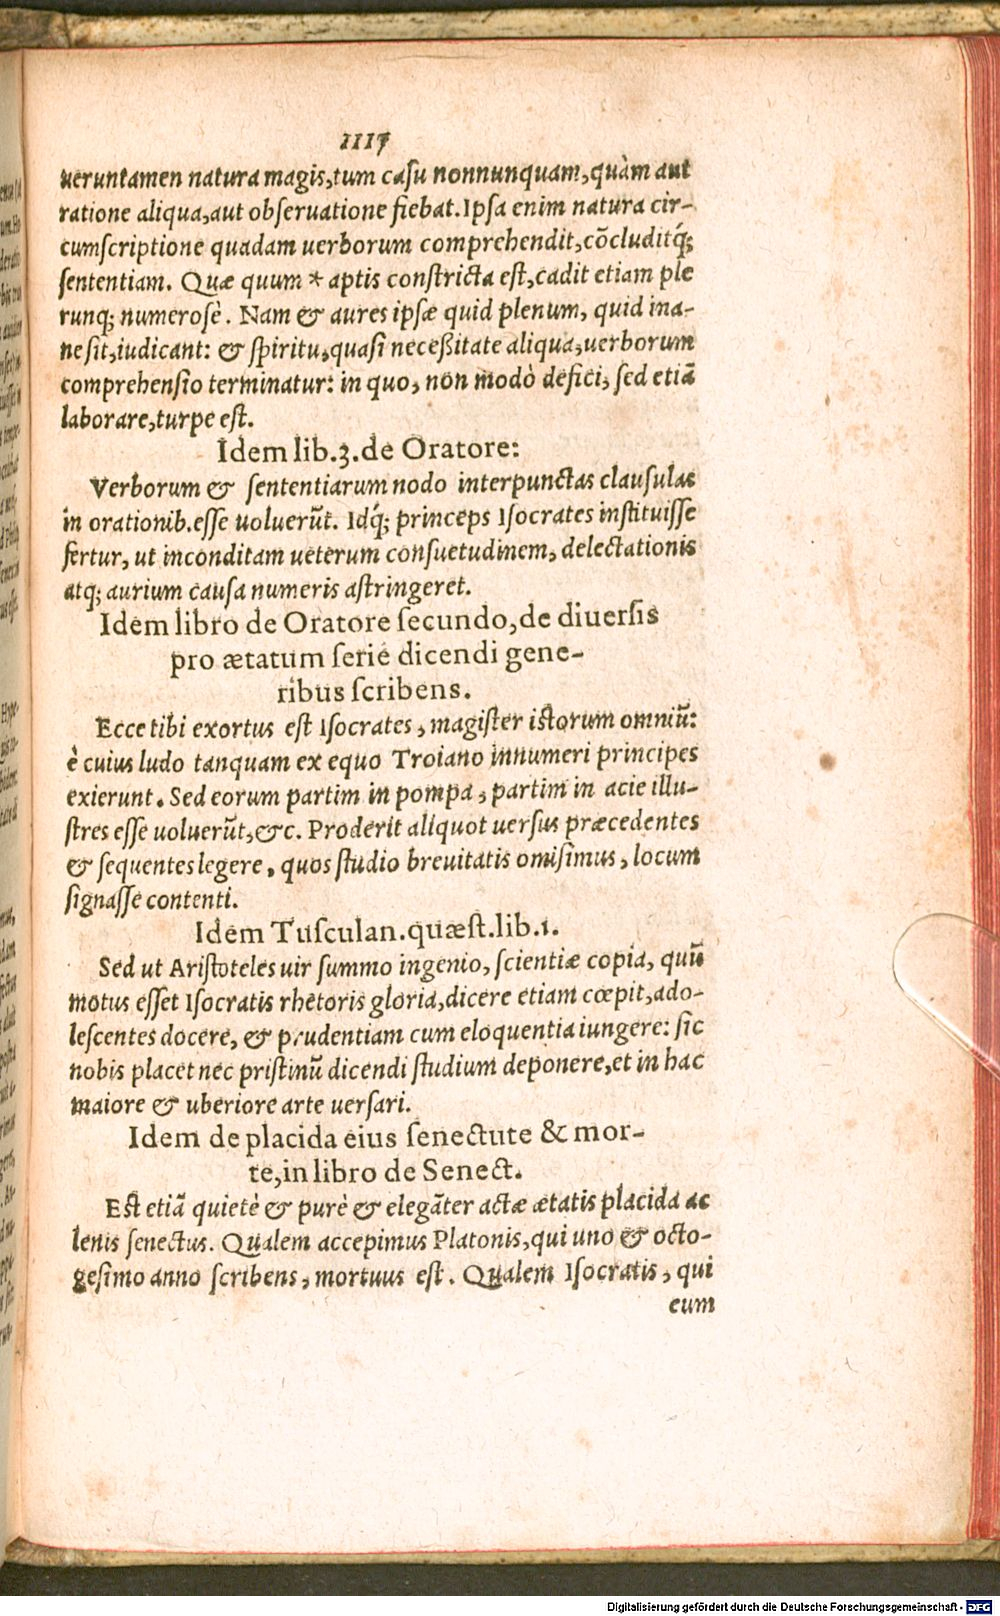 ueruntamen natura magis, tum casu nonnunquam, quàm aut
ratione aliqua, aut obseruatione fiebat. Ipsa enim natura cir-
cumscriptione quadam uerborum comprehendit, cõcluditq́;
sententiam. Quæ quum * aptis constricta est, cadit etiam ple
runq; numerosè. Nam & aures ipsæ quid plenum, quid ina-
ne sit, iudicant: & spiritu, quasi neceßitate aliqua, uerborum
comprehensio terminatur: in quo, non modò defici, sed etiã
laborare, turpe est.
Idem lib.3. de Oratore:
Verborum & sententiarum nodo interpunctas clausulas
in orationib. esse uoluerũt. Idq́; princeps Isocrates instituisse
fertur, ut inconditam ueterum consuetudinem, delectationis
atq; aurium causa numeris astringeret.
Idem libro de Oratore secundo, de diuersis
pro ætatum serie dicendi gene-
ribus scribens.
Ecce tibi exortus est Isocrates, magister istorum omniũ:
è cuius ludo tanquam ex equo Troiano innumeri principes
exierunt. Sed eorum partim in pompa, partim in acie illu-
stres esse uoluerũt, &c. Proderit aliquot uersus præcedentes
& sequentes legere, quos studio breuitatis omisimus, locum
signasse contenti.
Idem Tusculan. quæst. lib.1.
Sed ut Aristoteles uir summo ingenio, scientiæ copia, quũ
motus esset Isocratis rhetoris gloria, dicere etiam cœpit, ado-
lescentes docere, & prudentiam cum eloquentia iungere: sic
nobis placet nec pristinũ dicendi studium deponere, et in hac
maiore & uberiore arte uersari.
Idem de placida eius senectute & mor-
te, in libro de Senect.
Est etiã quietè & purè & elegãter actæ ætatis placida ac
lenis senectus. Qualem accepimus Platonis, qui uno & octo-
gesimo anno scribens, mortuus est. Qualem Isocratis, qui
eum
Digitalisierung gefördert durch die Deutsche Forschungsgemeinschaft - DFG